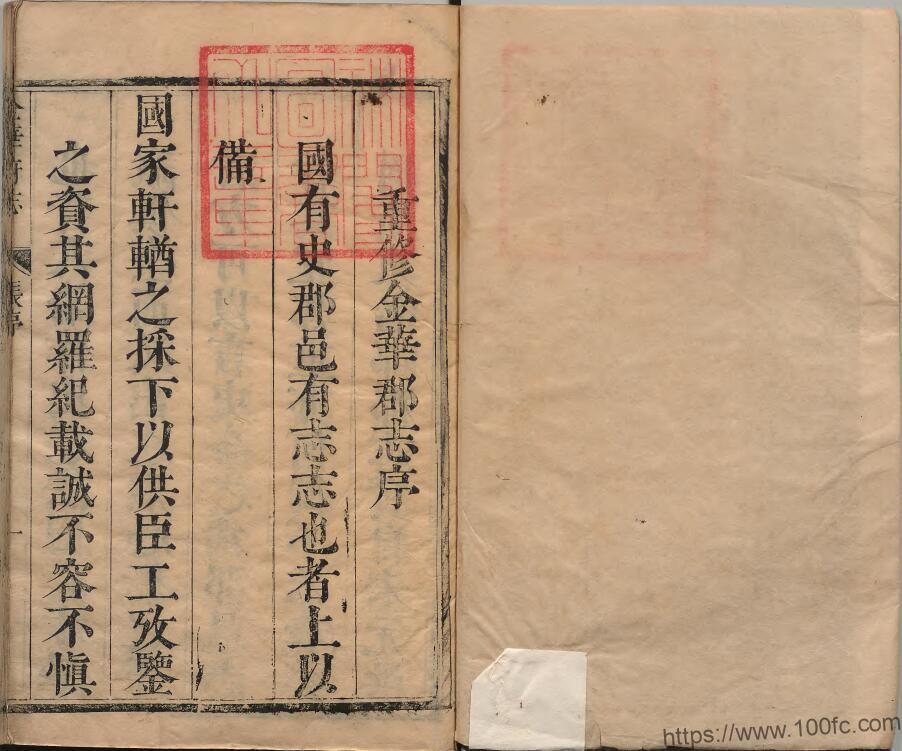 重修金華郡志序
國有史郡邑有志志也者上以
備
國家軒輶之採下以供臣工攷鑒
之資其網羅紀載誠不容不慎
張序
一
https://www.100fc.com